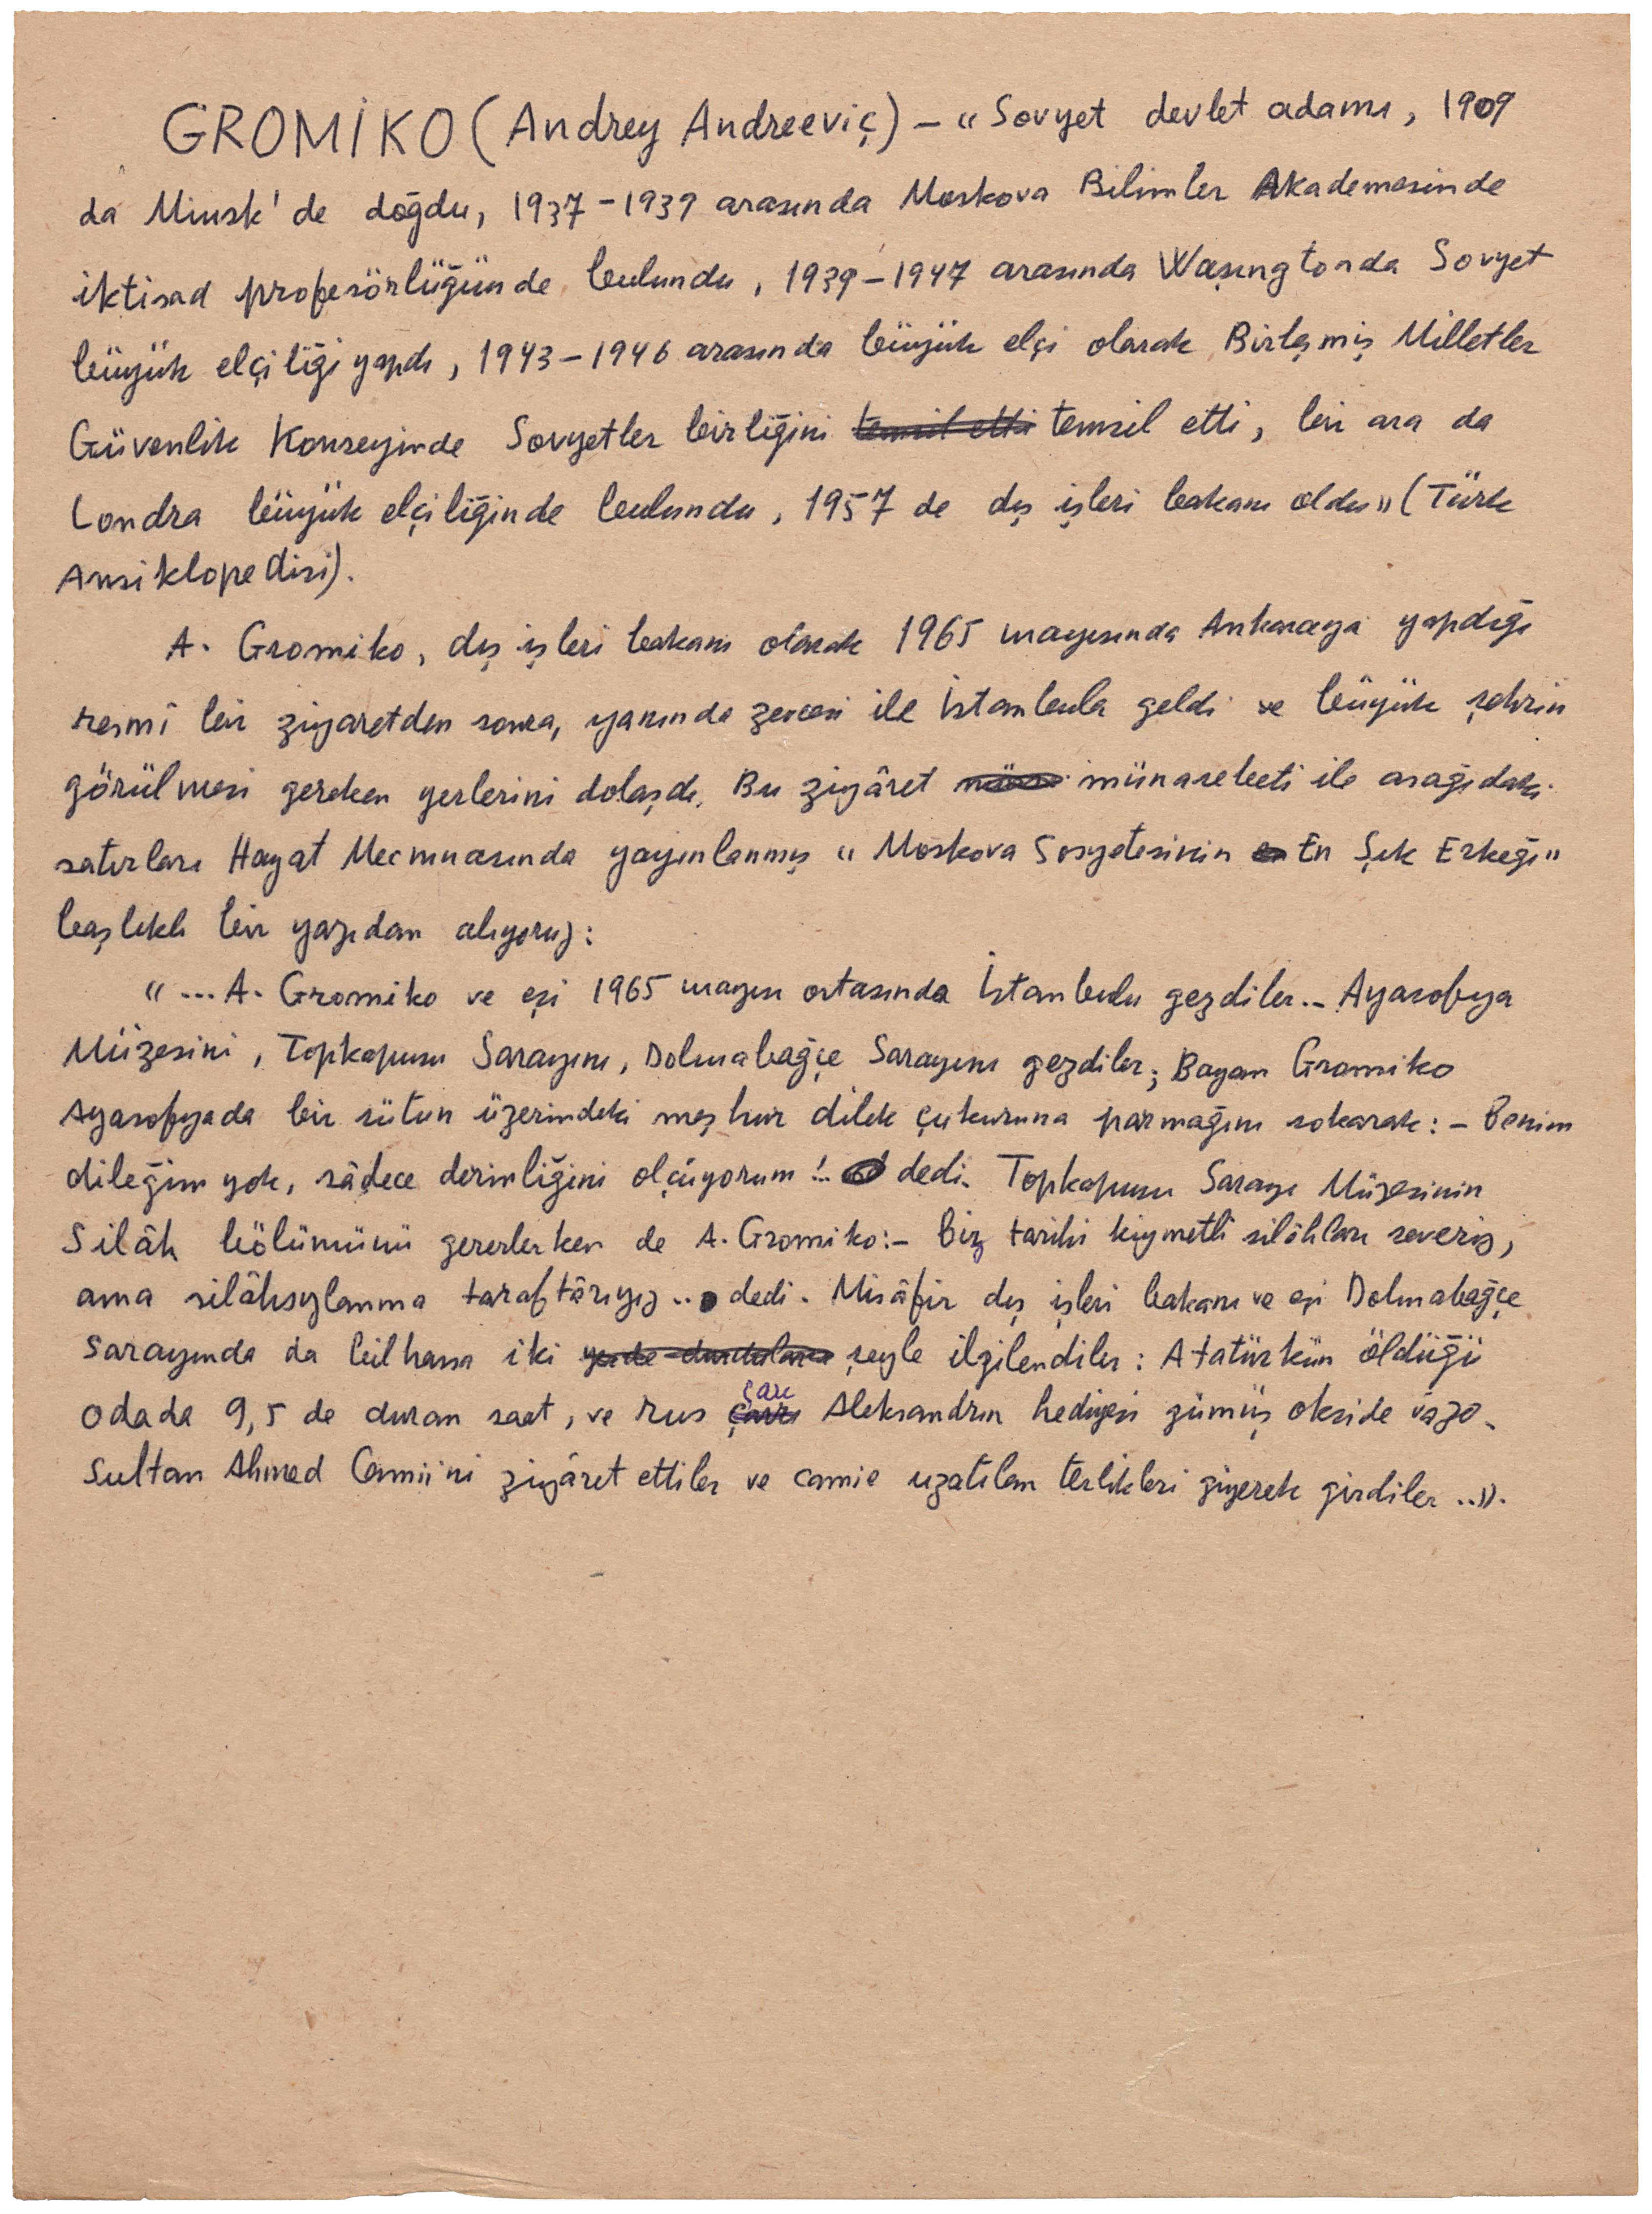 GROMİKO (Andrey Andreeviç) – "Sovyet devlet adamı, 1909
da Minsk'de doğdu, 1937–1939 arasında Moskova Bilimler Akademesinde
iktisad profesörlüğünde bulundu, 1939–1947 arasında Waşıngtonda Sovyet
büyük elçiliği yapdı, 1943–1946 arasında büyük elçi olarak Birleşmiş Milletler
Güvenlik Konseyinde Sovyetler birliğini temsil etti temsil etti, bir ara da
Londra büyük elçiliğinde bulundu, 1957 de dış işleri bakanı oldu" (Türk
Ansiklopedisi).
A. Gromiko, dış işleri bakanı olarak 1965 mayısında Ankaraya yapdığı
resmî bir ziyaretden sonra, yanında zevcesi ile İstanbula geldi ve büyük şehrin
görülmesi gereken yerlerini dolaşdı. Bu ziyâret münasebeti ile aşağıdaki
satırları Hayat Mecmuasında yayınlanmış "Moskova Sosyetesinin en En Şık Erkeği"
başlıklı bir yazıdan alıyoruz:
"... A. Gromiko ve eşi 1965 mayısı ortasında İstanbulu gezdiler.. Ayasofya
Müzesini, Topkapusu Sarayını, Dolmabağçe Sarayını gezdiler; Bayan Gromiko
Ayasofyada bir sütun üzerindeki meşhur dilek çukuruna parmağını sokarak: – Benim
dileğim yok, sâdece derinliğini olçüyorum!.. dedi. Topkapusu Sarayı Müzesinin
Silâh bölümünü gezerlerken de A. Gromiko:– Biz tarihi kıymetli silâhları severiz,
ama silâhsızlanma taraftârıyız.. dedi. Misâfir dış işleri bakanı ve eşi Dolmabağçe
Sarayında da bilhassa iki yerde durdular şeyle ilgilendiler: Atatürkün öldüğü
odada 9,5 de duran saat, ve rus çarı
çarı Aleksandrın hediyesi gümüş okside vazo.
Sultan Ahmed Camiini ziyâret ettiler ve camie uzatılan terlikleri giyerek girdiler ..".